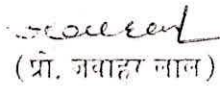 (प्रो. जवाहर लाल)